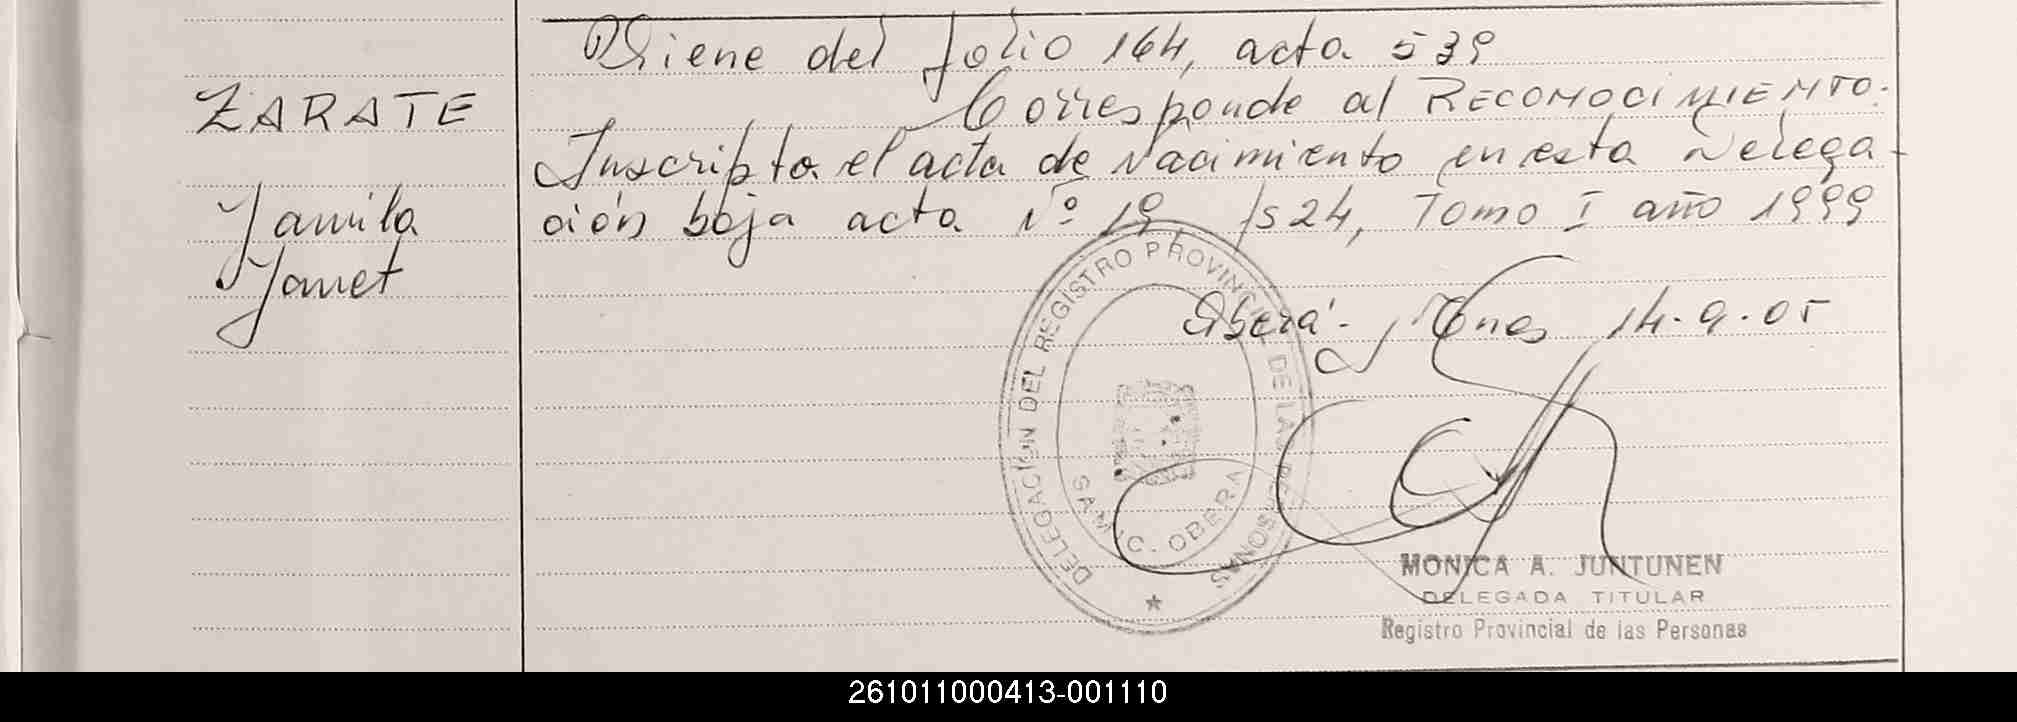 Viene del folio 164, acta 539
ZARATE
Corresponde al RECONOCIMIENTO.
Inscripta el acta de Nacimiento en esta Delega-
Yamila
ción baja acta Nº 19 fs 24, Tomo I año 1999
Yanet
Oberá - Mnes 14-9-05
DELEGACIÓN DEL REGISTRO PROVINCIAL DE LAS PERSONAS
OBERA
MONICA A. JUNTUNEN
DELEGADA TITULAR
Registro Provincial de las Personas
261011000413-001110